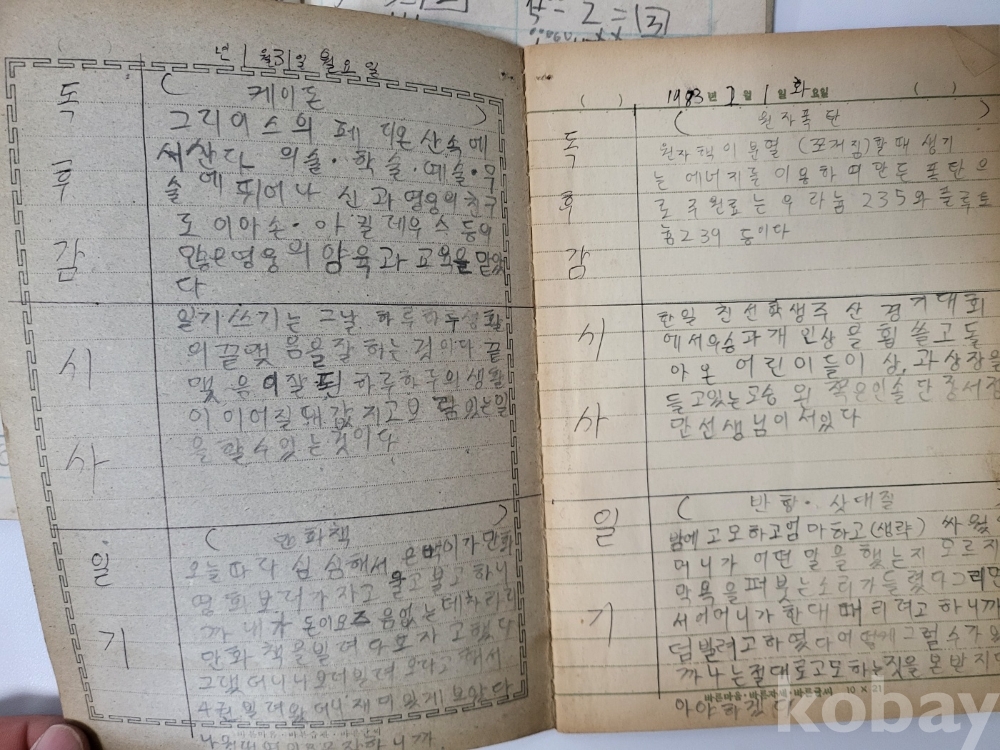 5 - 2 = 3
년 1월 31일 월요일
독
후
감
( 케이론 )
그리이스의 페 리온 산속에
서 산다 의술·학술·예술·무
술에 뛰어나 신과 영웅의 친구
로 이아손·아킬레우스 등의
많은 영웅의 양육과 교육을 맡았
다
시
사
일기 쓰기는 그날 하루하루 생활
의 끝맺음을 잘 하는 것이다 끝
맺음이 잘 될 하루하루의 생활
이 이어질 때 값지고 보람있는 일
을 할 수 있는 것이다
일
기
( 만화책 )
오늘따라 심심해서 은백이가 만화
영화 보러가자고 울고불고 하니
까 내가 돈이 요즈음 없는데 차라리
만화책을 빌려다 보자고 했다
그랬더니 나보다 빌려오라고 해서
4권 빌려왔더니 재미있게 보았다
바른마음·바른자세·바른글씨
1983년 2월 1일 화요일
( )
독
후
감
( 원자폭탄 )
원자핵이 분열 (쪼개짐)할 때 생기
는 에너지를 이용하여 만든 폭탄으
로 주원료는 우라늄 235와 플루토
늄 239 등이다
시
사
한일 친선 학생 주산 경기대회
에서 우승과 개인상을 휩쓸고 돌
아온 어린이들이 상,과 상장을
들고 있는 모습 왼쪽은 인솔단장 서정
만 선생님이 서있다
일
기
( 반항·삿대질
밤에 고모하고 엄마하고 (생략) 싸웠
머니가 어떤 말을 했는지 모르지
악욕을 퍼붓는 소리가 들렸다 그러면
서 어머니가 한대 때리려고 하니까
덤빌려고 하였다 어떻게 그럴 수가
까 나는 절대로 고모하는 짓을 본받지
아야 하겠다
바른마음·바른자세·바른글씨 10 × 21
kobay